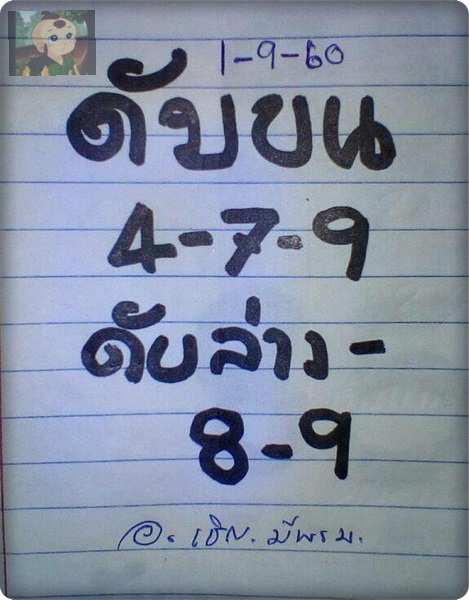 1-9-60
ดับบน
4-7-9
ดับล่าง-
8-9
อ. เชิญ. มีพรม.